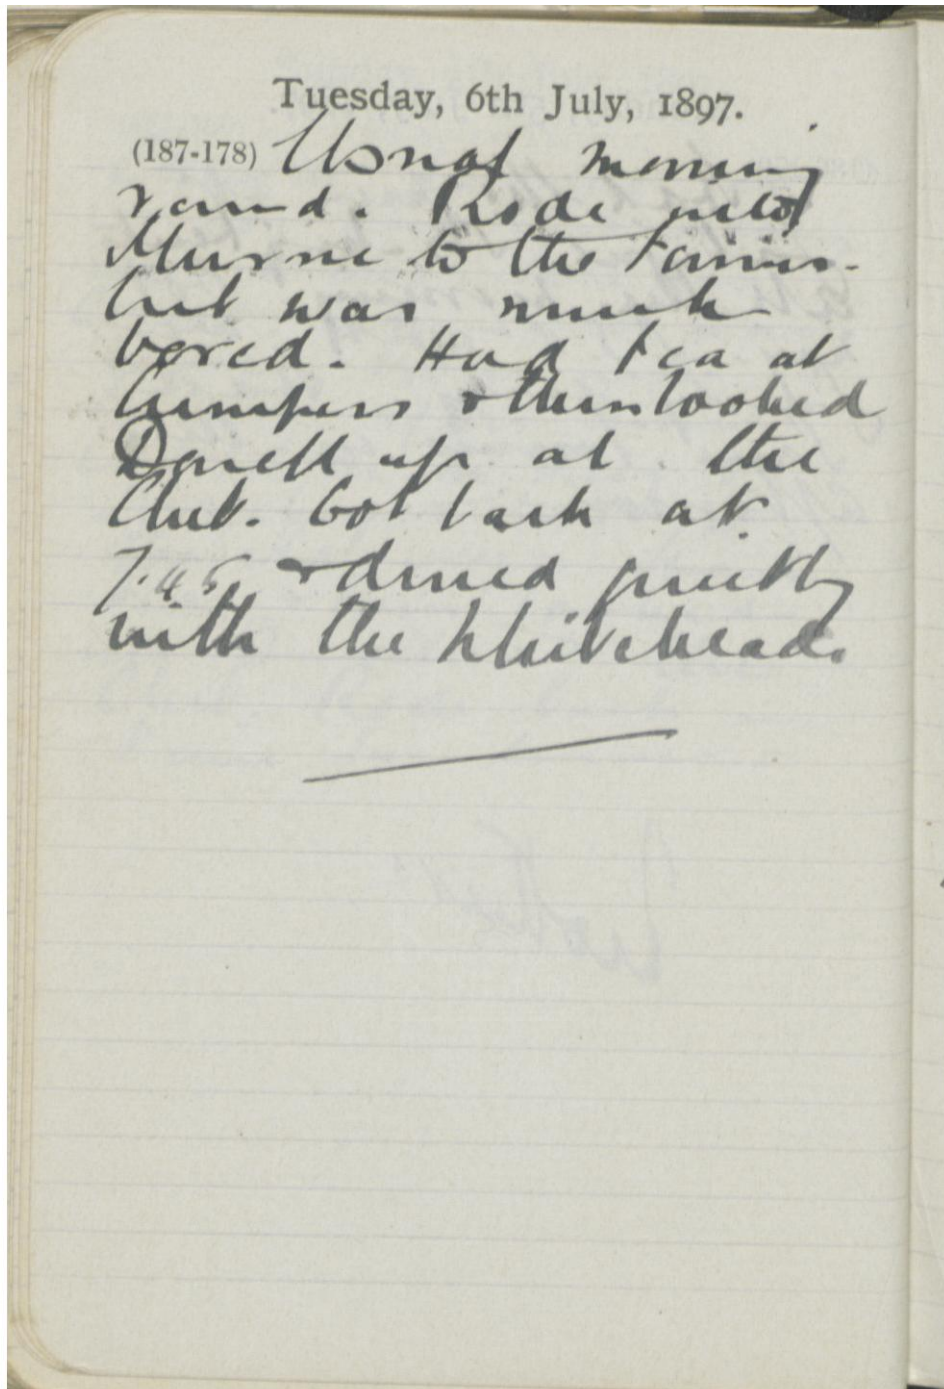 Tuesday, 6th July, 1897.
(187-178) Usual morning
round. Rode into
Murree to the Tennis.
but was much
bored. Had tea at
& then looked
up at the
Club. Got back at
7.45 & dined quietly
with the Whiteheads.